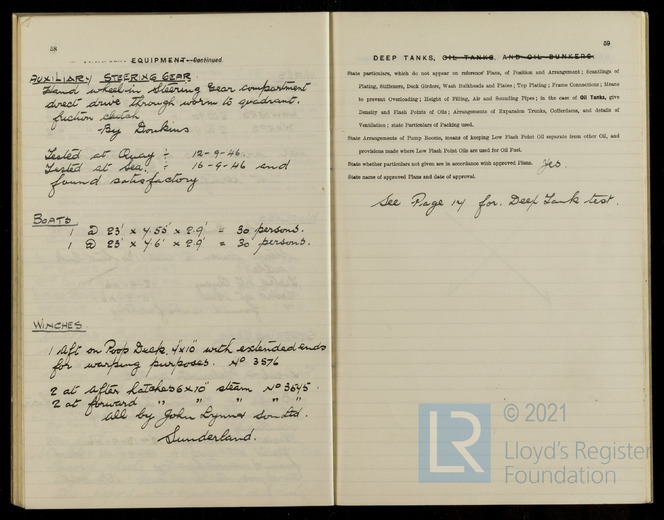 58
EQUIPMENT—Continued.
AUXILIARY STEERING GEAR
Hand wheel in Steering Gear compartment
direct drive through worm to quadrant.
friction clutch
By Donkins
Tested at Quay :- 12-9-46.
Tested at Sea :- 16-9-46 and
found satisfactory
BOATS
1 @ 23' x 4.55' x 2.9' = 30 persons.
1 @ 23' x 4.6' x 2.9' = 30 persons.
WINCHES
1 Aft on Poop Deck. 4"x10" with extended ends
for warping purposes. No 3576
2 at after hatches 6x10" steam No 3645.
2 at forward " " " "
all by John Lynn & Son Ltd.
Sunderland.
59
DEEP TANKS, OIL TANKS, AND OIL BUNKERS.
State particulars, which do not appear on reference Plans, of Position and Arrangement; Scantlings of
Plating, Stiffeners, Deck Girders, Wash Bulkheads and Plates; Top Plating; Frame Connections; Means
to prevent Overloading; Height of Filling, Air and Sounding Pipes; in the case of Oil Tanks, give
Density and Flash Points of Oils; Arrangements of Expansion Trunks, Cofferdams, and details of
Ventilation; state Particulars of Packing used.
State Arrangements of Pump Rooms, means of keeping Low Flash Point Oil separate from other Oil, and
provisions made where Low Flash Point Oils are used for Oil Fuel.
State whether particulars not given are in accordance with approved Plans. Yes.
State name of approved Plans and date of approval.
See Page 14 for Deep Tank test.
LR
© 2021
Lloyd's Register
Foundation